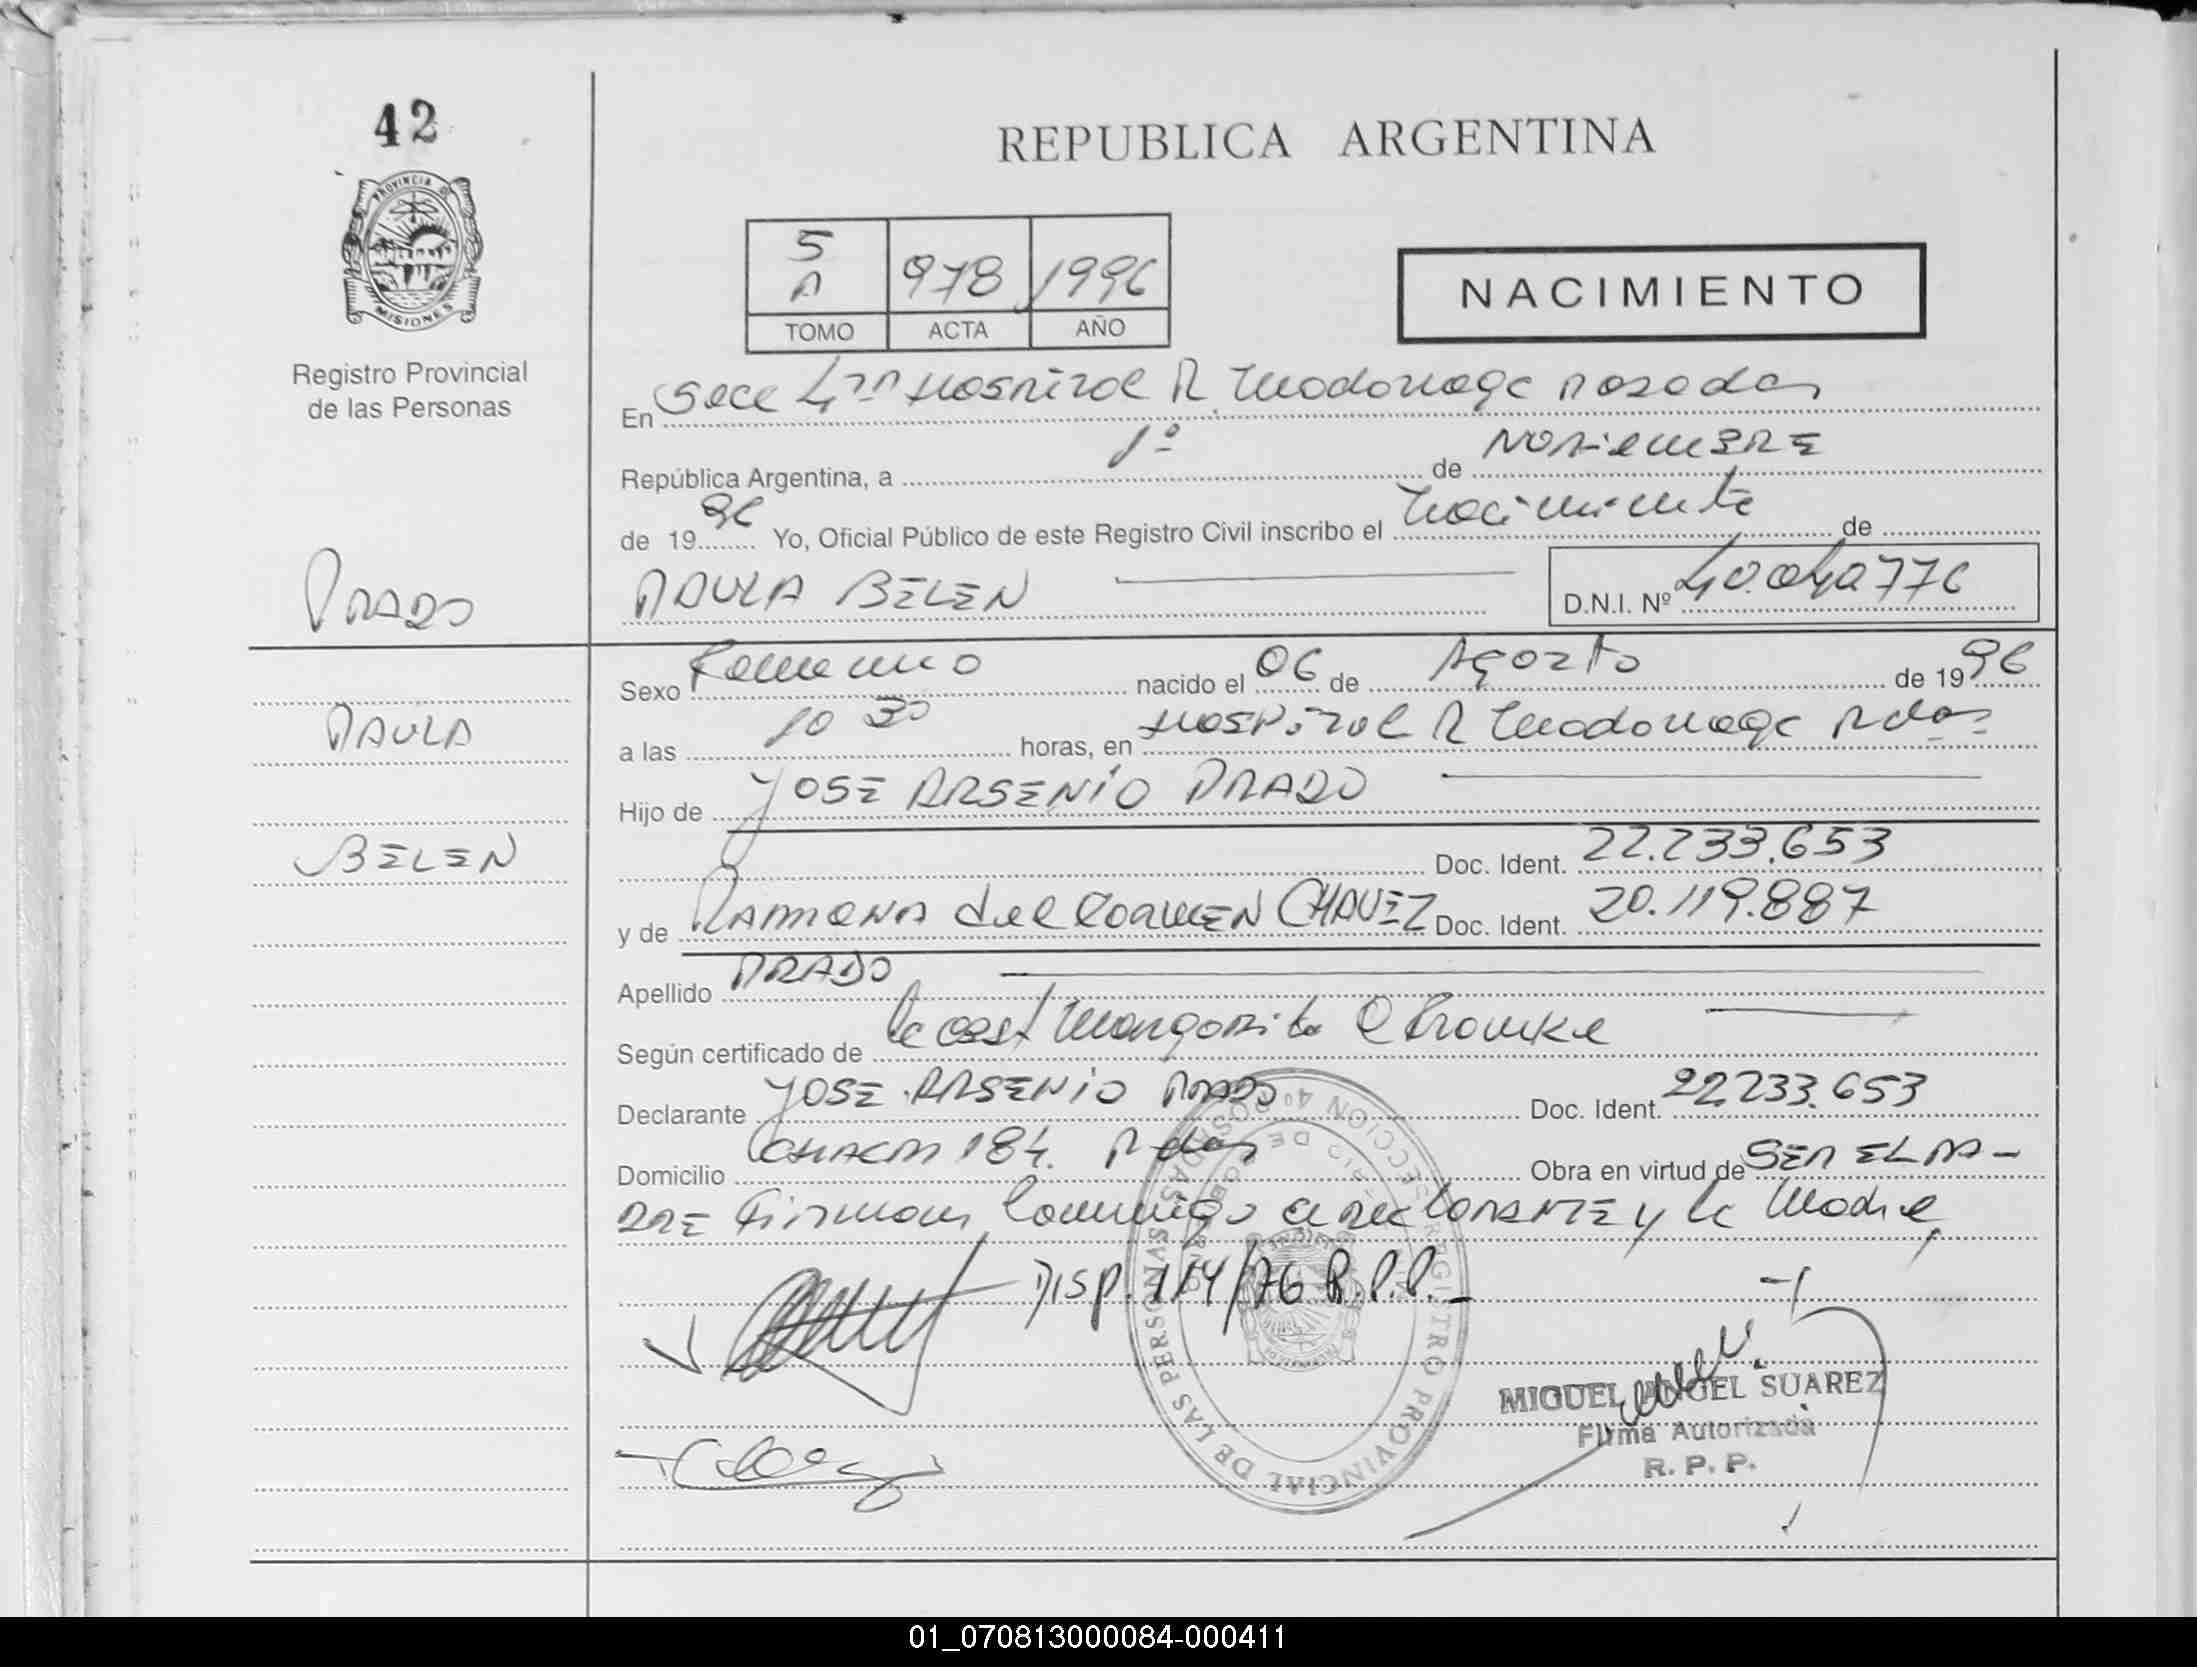 42
REPUBLICA ARGENTINA
PROVINCIA DE
MISIONES
Registro Provincial
de las Personas
5 A 978 1996
TOMO ACTA AÑO
NACIMIENTO
En Secc 4ta Hospital R. Madariaga Posadas
República Argentina, a 1º de NOViEMBRE
de 1996 Yo, Oficial Público de este Registro Civil inscribo el Nacimiento de
PAULA BELEN D.N.I. Nº 40.040776
PRADO
PAULA
BELEN
Sexo Femenino nacido el 06 de Agosto de 1996
a las 10 30 horas, en Hospital R Madariaga Pdas
Hijo de JOSE ARSENiO PRADO
Doc. Ident. 22.233.653
y de RAMONA del CARMEN CHAVEZ Doc. Ident. 20.119.887
Apellido PRADO
Según certificado de la obst Margarita
Declarante JOSE ARSENiO PRADO Doc. Ident. 22.233.653
Domicilio 184. Pdas Obra en virtud de SER EL PA-
DRE Firman Conmigo el DEClARANTE y la Madre
Disp. 114/76 R.P.P.-
REGISTRO PROVINCIAL DE LAS PERSONAS
SECCION 4º POSADAS
MIGUEL ANGEL SUAREZ
Firma Autorizada
R. P. P.
01_070813000084-000411